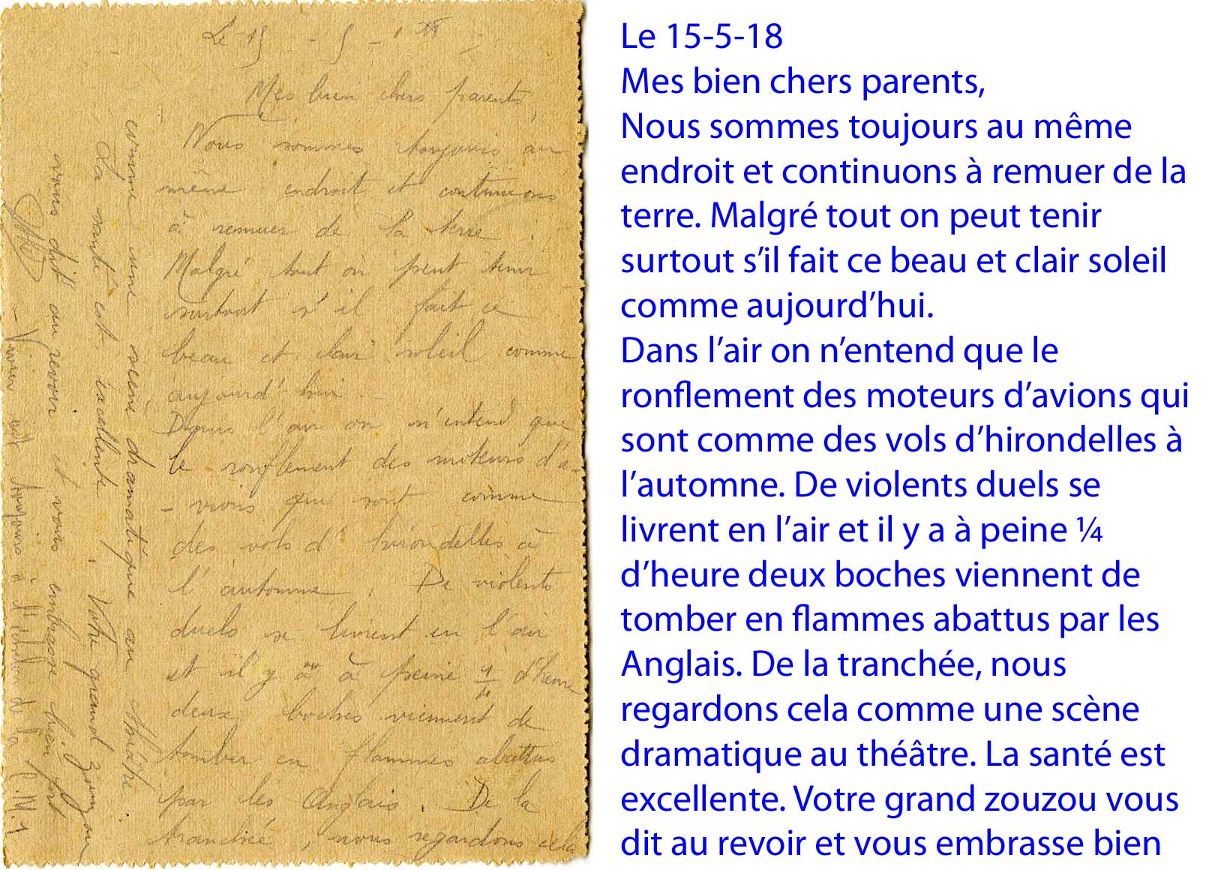 Le 15 - 5 - 1
Mes bien chers parents,
Nous sommes toujours au
même endroit et continuons
à remuer de la terre.
Malgré tout on peut tenir
surtout s'il fait ce
beau et clair soleil comme
aujourd'hui.
Depuis l'air on n'entend que
le ronflement des moteurs d'a-
-vions qui sont comme
des vols d'hirondelles à
l'automne. De violents
duels se livrent en l'air
et il y a à peine 1/4 d'heure
deux boches viennent de
tomber en flammes abattus
par les Anglais. De la
tranchée, nous regardons cela
comme une scène dramatique au théâtre.
La santé est excellente. Votre grand zouzou
vous dit au revoir et vous embrasse bien
Le 15-5-18
Mes bien chers parents,
Nous sommes toujours au même
endroit et continuons à remuer de la
terre. Malgré tout on peut tenir
surtout s’il fait ce beau et clair soleil
comme aujourd’hui.
Dans l’air on n’entend que le
ronflement des moteurs d’avions qui
sont comme des vols d’hirondelles à
l’automne. De violents duels se
livrent en l’air et il y a à peine ¼
d’heure deux boches viennent de
tomber en flammes abattus par les
Anglais. De la tranchée, nous
regardons cela comme une scène
dramatique au théâtre. La santé est
excellente. Votre grand zouzou vous
dit au revoir et vous embrasse bien